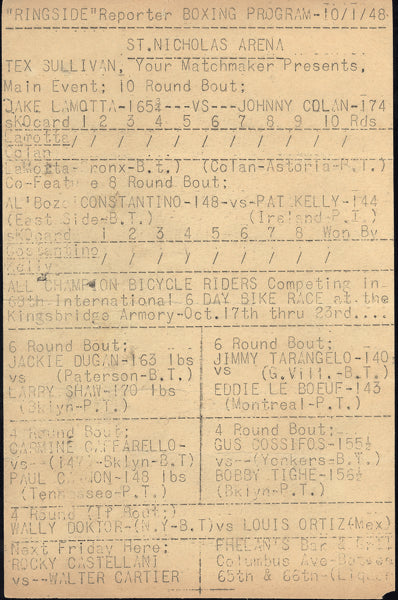 "RINGSIDE" Reporter BOXING PROGRAM-10/1/48
ST.NICHOLAS ARENA
TEX SULLIVAN, Your Matchmaker Presents,
Main Event; 10 Round Bout;
JAKE LAMOTTA-165¾---VS---JOHNNY COLAN-174
sKOcard 1 2 3 4 5 6 7 8 9 10 Rds
Lamotta / / / / / / / / /
Colan
LaMotta-Bronx-B.t.) (Colan-Astoria-P.T.)
Co-Feature 8 Round Bout;
AL'Bozo CONSTANTINO-148-vs-PAT KELLY-144
(East Side-B.T.) (Ireland-P.T.)
sKOcard 1 2 3 4 5 6 7 8 Won By
Costantino
Kelly / / / / / / / /
ALL CHAMPION BICYCLE RIDERS Competing in
International 6 DAY BIKE RACE at the
Kingsbridge Armory-Oct.17th thru 23rd....
6 Round Bout;
JACKIE DUGAN-163 lbs
vs (Paterson-B.T.)
LARRY SHAW-170 lbs
(Bklyn-P.T.)
6 Round Bout;
JIMMY TARANGELO-140
vs (G.Vill.-B.T.)
EDDIE LE BOEUF-143
(Montreal-P.T.)
4 Round Bout;
CARMINE CAFFARELLO-
vs--(147½-Bklyn-B.T)
PAUL CANNON-148 lbs
(Tennessee-P.T.)
4 Round Bout;
GUS COSSIFOS-155½
vs--(Yonkers-B.T.)
BOBBY TIGHE-156½
(Bklyn-P.T.)
4 Round (IF Bout;)
WALLY DOKTOR-(N.Y-B.T)vs LOUIS ORTIZ(Mex)
Next Friday Here;
ROCKY CASTELLANI
vs---WALTER CARTIER
PHELAN'S Bar & Grill
Columbus Ave-Between
65th & 66th-(Liquor